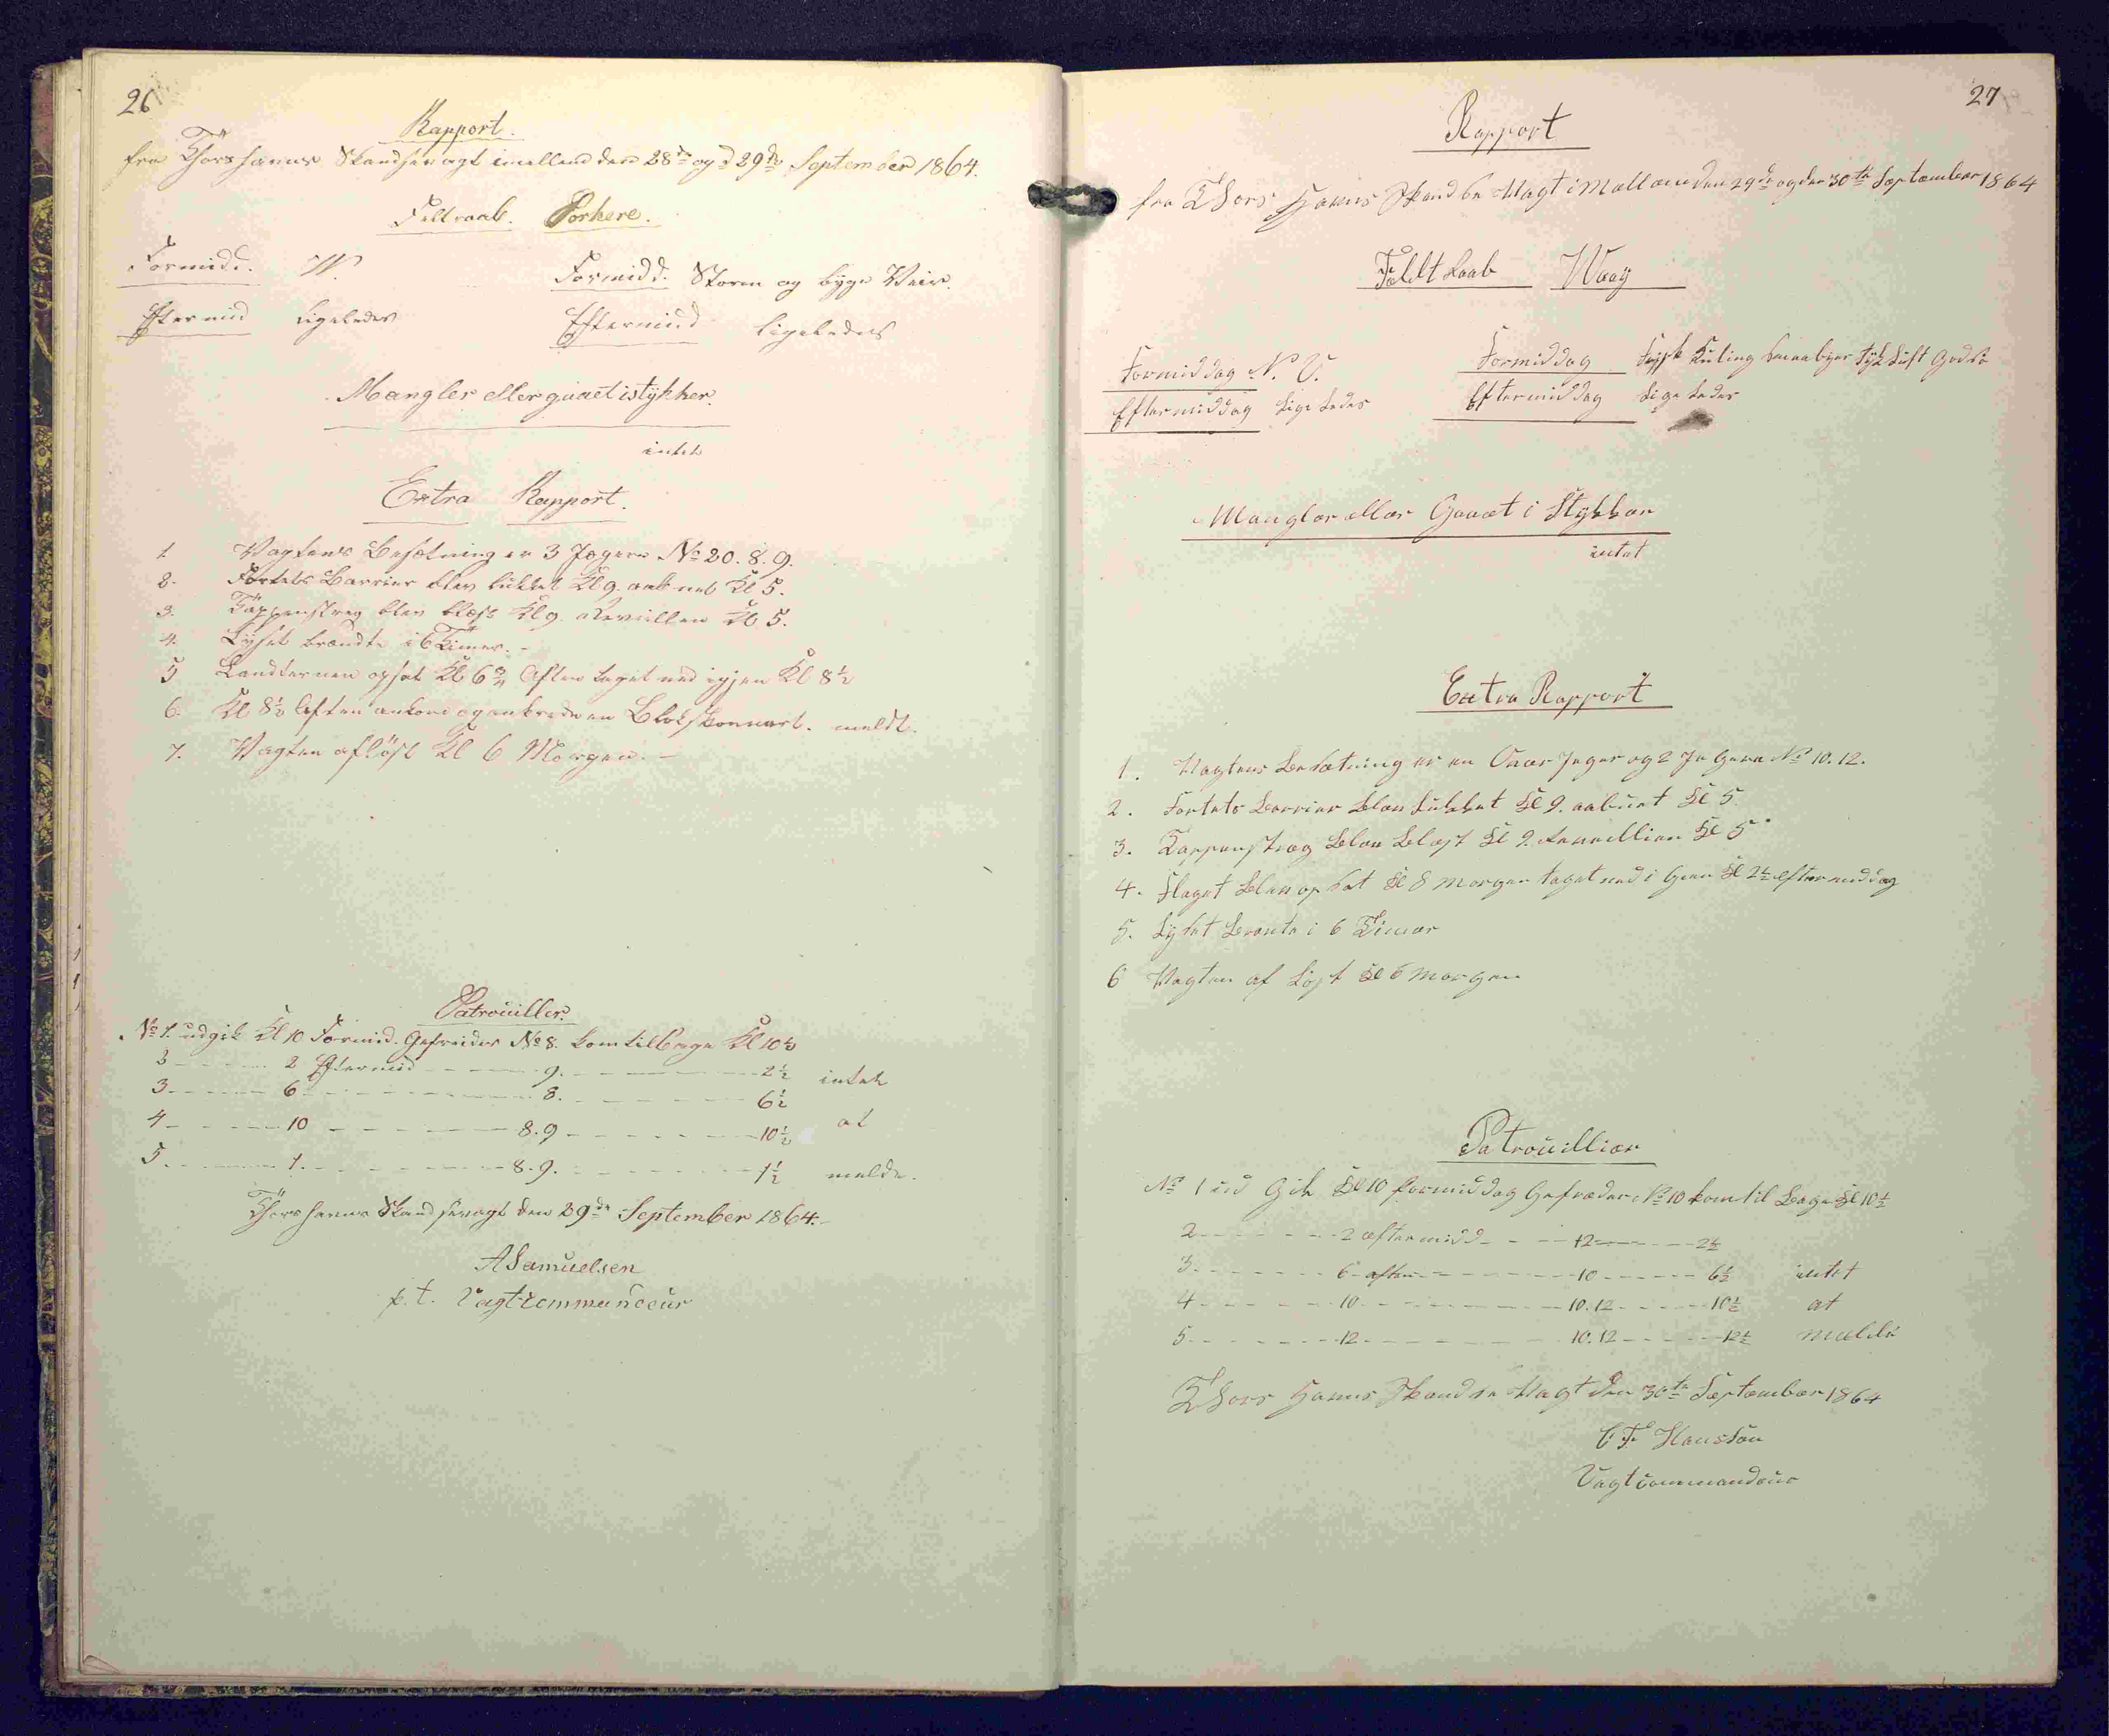 26
Rapport.
fra Thorshavns Skandsevagt imellem den 28de og d 29de September 1864.
Feltraab. Porkere.
Formidd. W. Formidd. Storm og byge Veir.
Eftermid ligeledes Eftermid ligeledes
Mangler eller gaaet istykker.
intet
Extra Rapport.
1 Vagtens Besætning er 3 Jægere No 20. 8. 9.
2. Fortets Barrier blev lukket Kl 9. aabnet Kl 5.
3. Tappenstreg blev blæst Kl 9. Reveillen Kl 5.
4. Lyset brændte i 6 Timer. -
5 Landternen opsat Kl 6 3/4 Aften taget ned igjen Kl 8 1/2
6. Kl 8 1/2 Aften ankom og ankrede en Slobskonnart. meldt.
7. Vagten afløst Kl 6 Morgen. -
Patrouiller.
No 1. udgik Kl 10 Formid. Gefreider No 8. kom tilbage Kl 10 1/2
2 - - - 2 Eftermid - - - 9. - - - 2 1/2 intet
3. - - - 6 - - - 8. - - - 6 1/2
4 - - - 10 - - - 8. 9 - - - 10 1/2 at
5. - - - 1. - - - 8. 9. - - - 1 1/2 melde.
Thorshavns Skandsevagt den 29de September 1864. -
A Samuelsen
p. t. Vagtcommandeur
27
Rapport
fra Thors Havns Skandse Vagt i Mellem den 29de og den 30te September 1864
Feldt Raab Waag
Formiddag N. V. Formiddag Frisk Kuling Smaabyer Tyk Luft
Eftermiddag Lige Ledes Eftermiddag Lige Ledes
Mangler eller Gaaet i Stykker
intet
Extra Rapport
1. Vagtens Besætning er en Over Jeger og 2 Jegere No 10. 12.
2. Fortets Barrier Blev Lukket Kl 9. aabnet Kl 5
3. Tappenstræg Blev Blæst Kl 9. Reveillien Kl 5
4. Flaget Blev op Sat Kl 8 Morgen taget ned i Gien Kl 2 1/2 eftermiddag
5. Lyset Brænte i 6 Timer
6 Vagten af Løst Kl 6 Morgen
Patrouillier
No 1 ud Gik Kl 10 formiddag Gefreder No 10 kom til Bage Kl 10 1/2
2 - - - 2 eftermidd - - - 12 - - - 2 1/2
3. - - - 6 aften - - - 10 - - - 6 1/2 intet
4 - - - 10 - - - 10. 12 - - - 10 1/2 at
5 - - - 12 - - - 10. 12 - - - 12 1/2 melde
Thors Havns Skandse Vagt den 30te September 1864
C F Hansson
Vagtcommandeur